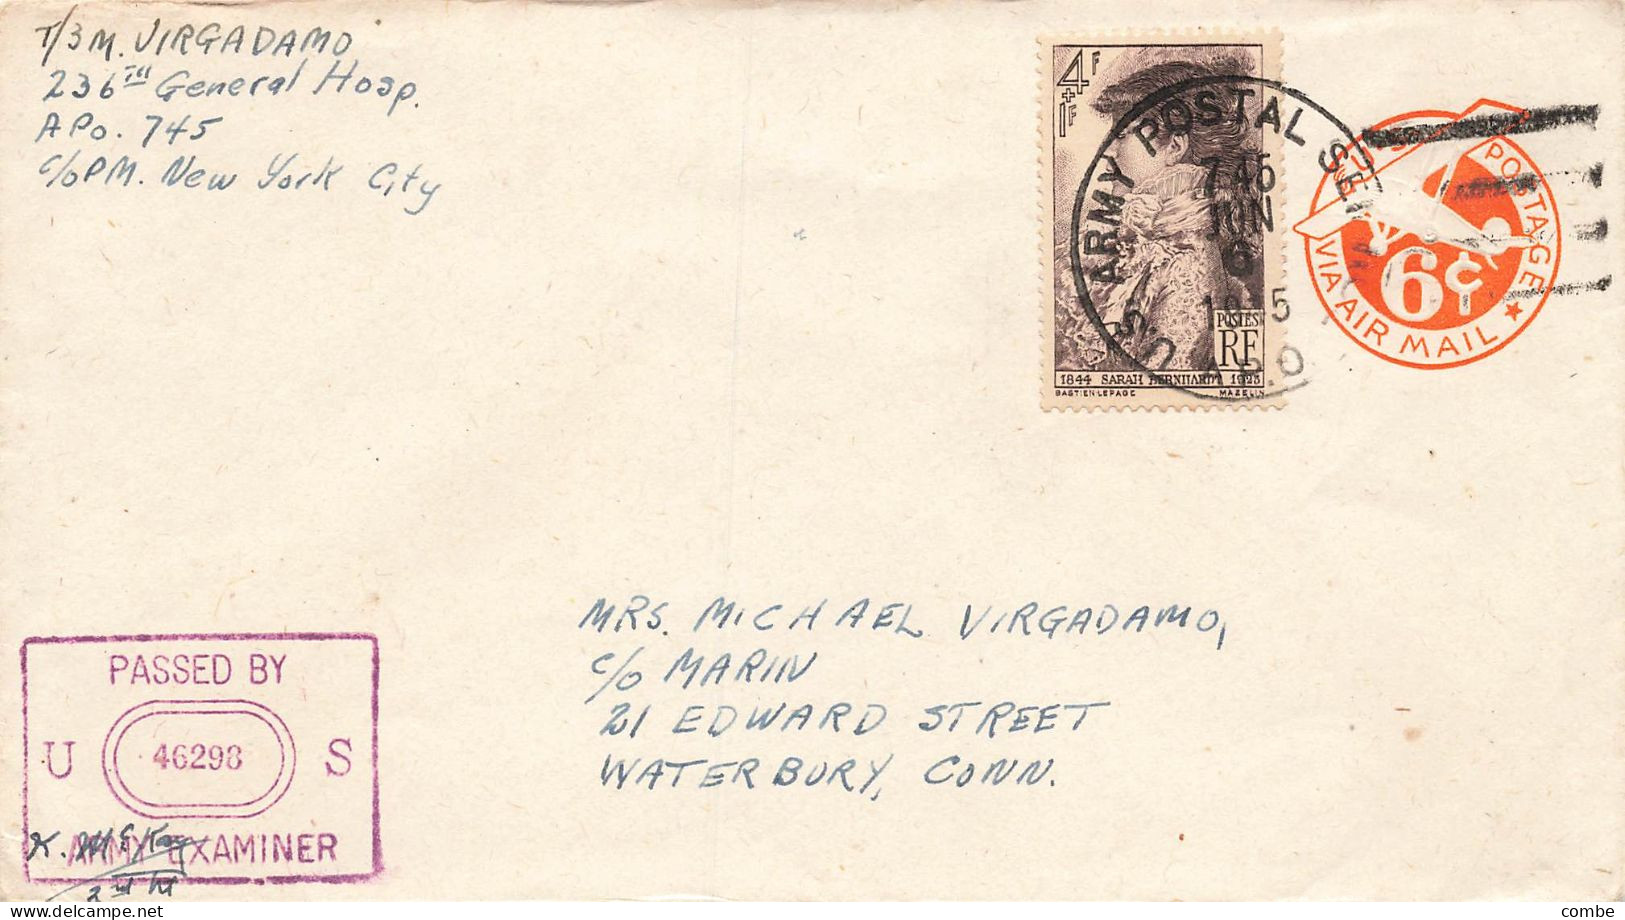 T/3 M. VIRGADAMO
236TH General Hosp.
APO. 745
C/O PM. New York City
4F
+1F
POSTES
RF
1844 SARAH BERNHARDT 1923
BASTIEN-LEPAGE MAZELIN
U.S. ARMY POSTAL SER
745
JUN
6
A.P.O.
U.S. POSTAGE
6¢
VIA AIR MAIL
MRS. MICHAEL VIRGADAMO,
C/O MARIN
21 EDWARD STREET
WATERBURY, CONN.
PASSED BY
U 46298 S
ARMY EXAMINER
2nd Lt
DELCAMPE
combe